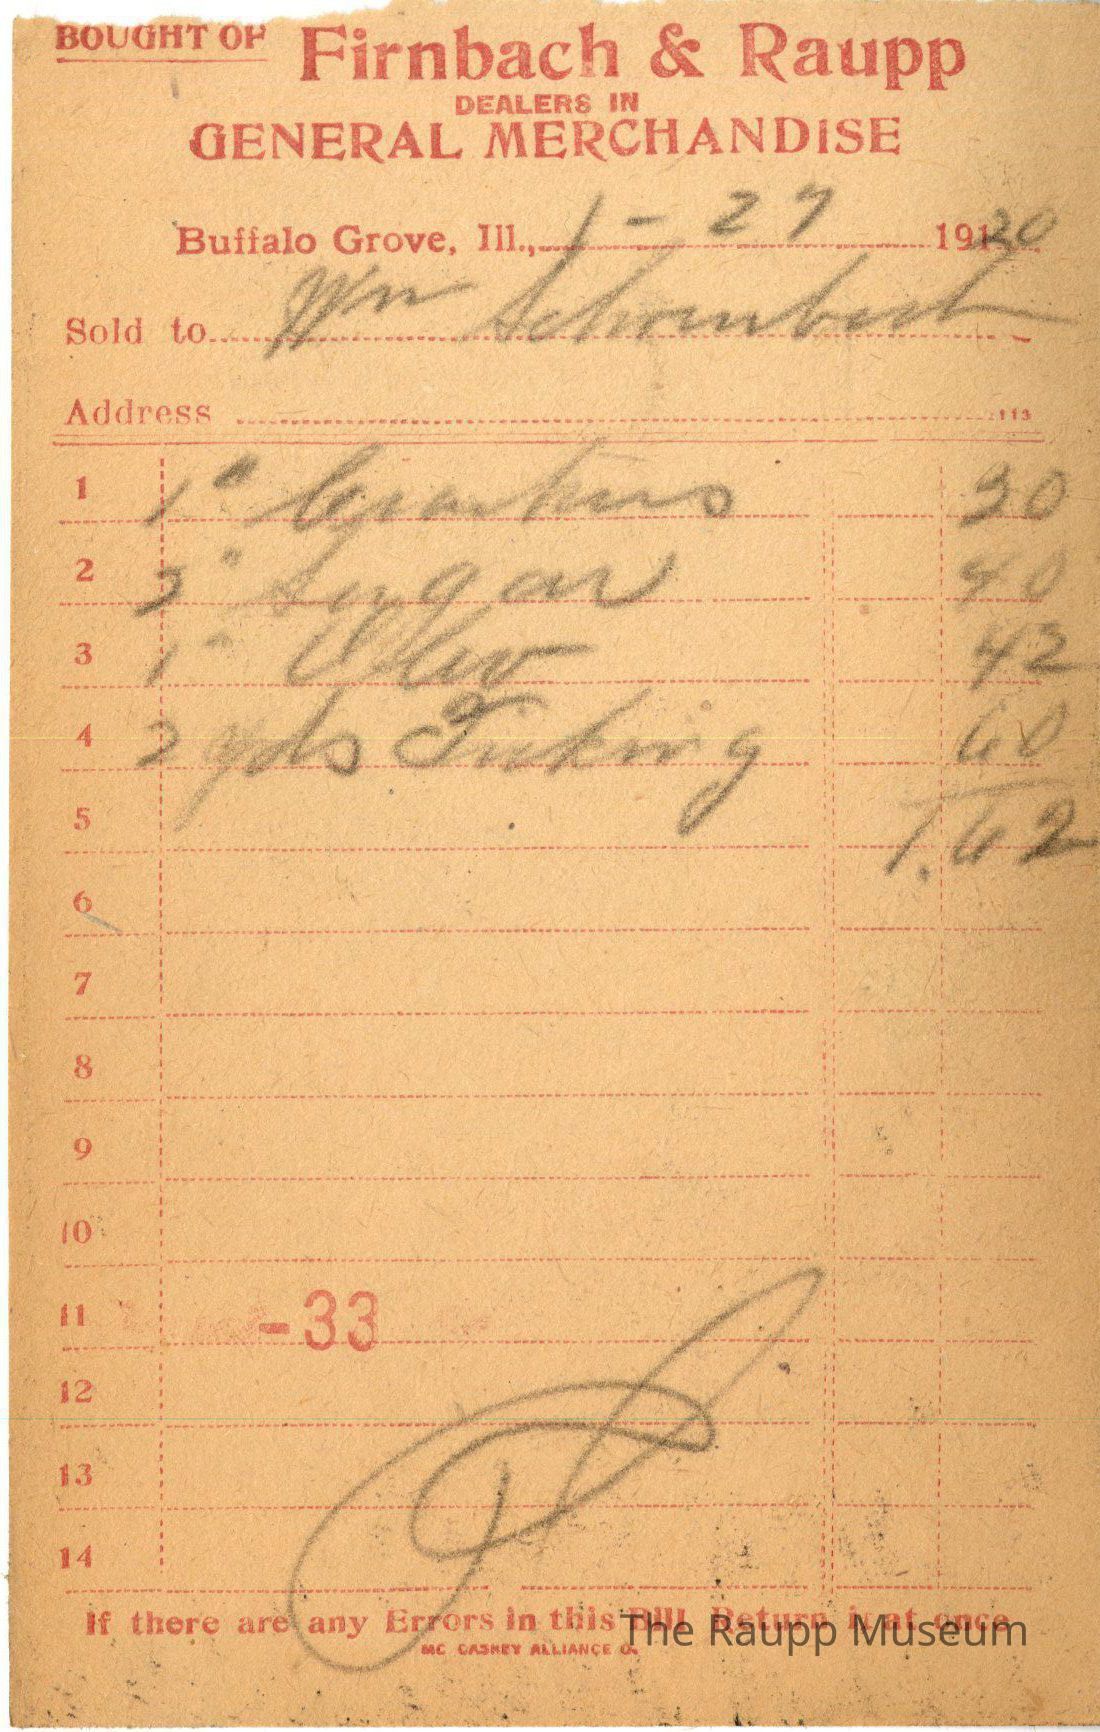 BOUGHT OF Firnbach & Raupp
DEALERS IN
GENERAL MERCHANDISE
Buffalo Grove, Ill., 1 - 27 1920
Sold to Wm
Address
113
1 1" Crackers 20
2 2" Sugar 40
3 1" Oleo 42
4 2 yds Ticking 60
5 1.62
6
7
8
9
10
11 -33
12
13
14
If there are any Errors in this Bill Return it at once
MC CASKEY ALLIANCE O.
The Raupp Museum